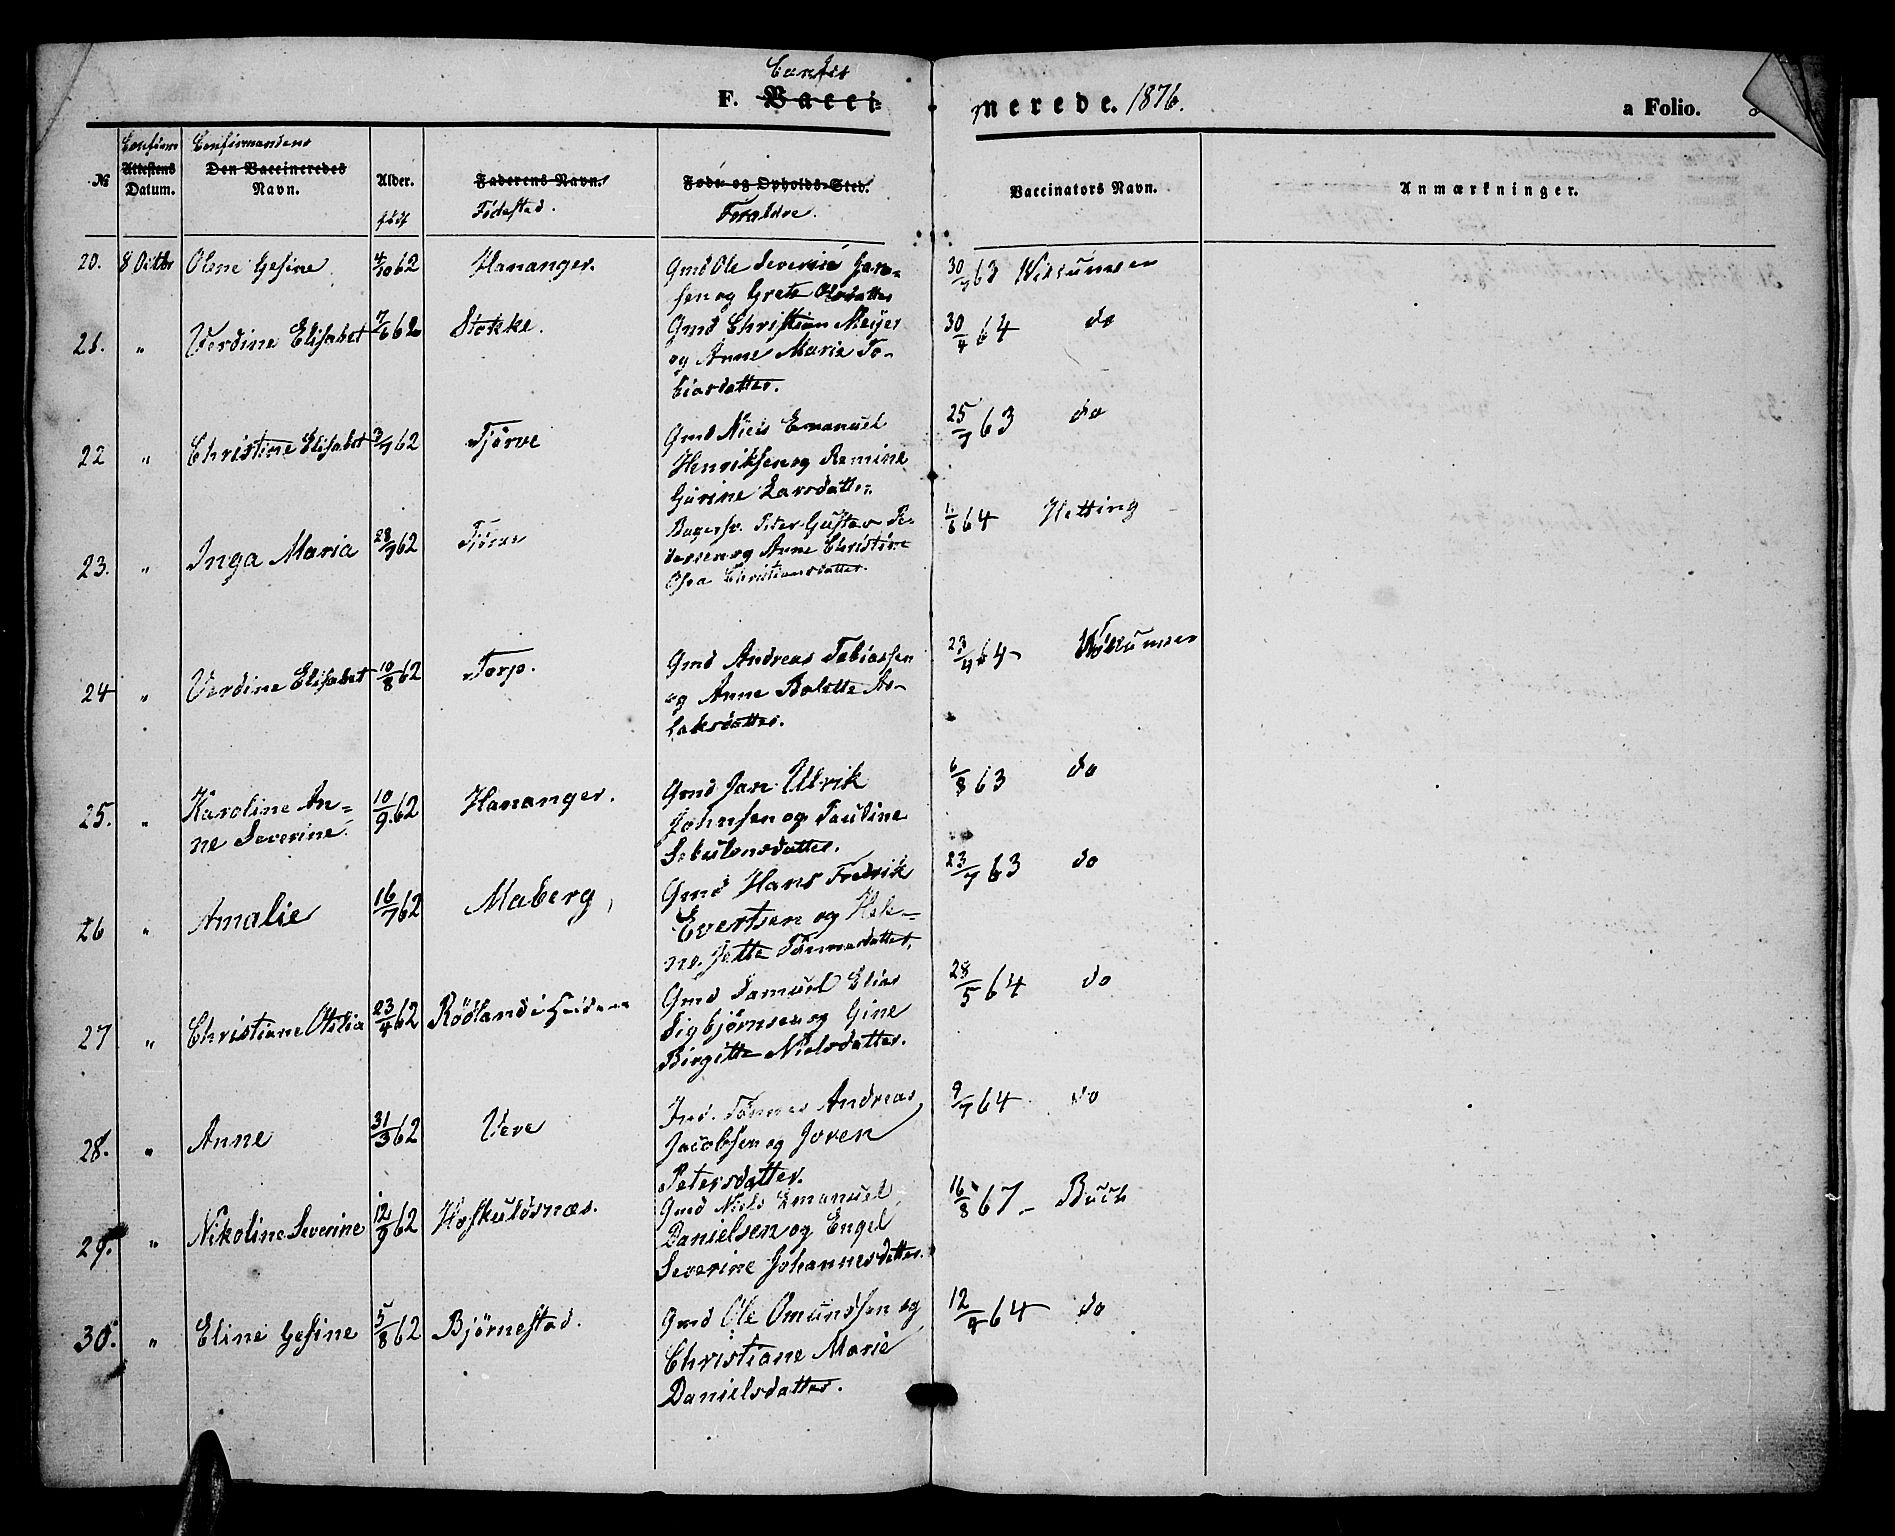 Confir
F. Vacci-
merede. 1876. a Folio.
Confirm Confirmandens
№ Attestens Datum. Den Vaccineredes Navn. Alder. født Faderens Navn. Fødested. Føde- og Opholds-Sted. Forældre. Vaccinators Navn. Anmærkninger.
20. 8 Octbr Olene Gesine 4/10 62 Hananger. Gmd Ole Severin Jan- 30/7 63
sen og Grete Olsdatter
21. " Verdine Elisabet 7/6 62 Stokke. Gmd Christian Meyer 30/4 64 do
og Anne Marie To-
biasdatter.
22 " Christine Elisabet 3/7 62 Tjørve Gmd Niels Emanuel 25/7 63 do
Henriksen og Remine
Gurine Larsdatter.
23. " Inga Maria 28/7 62 Peter Gustav Pe- 64 Hetting
dersen og Anne Christine
Osea Christiansdatter.
24 " Verdine Elisabet 10/8 62 Torp. Gmd Andreas Tobiassen 23/4 64
og Anne Bolette As-
laksdatter.
25. " Karoline An- 10/9 62 Hananger. Gmd Jan Ulrik 6/8 63 do
ne Severine. Johnsen og Pauline
Sebulonsdatter.
26 " Amalie 16/7 62 Maberg, Gmd Hans Fredrik 23/7 63 do
Evertsen og Hele-
ne Jette Tønnesdatter.
27 " Christiane Otilia 23/4 62 Rødland i Gmd Samuel Elias 28/5 64 do
Sigbjørnsen og Gine
Birgitte Nielsdatter.
28. " Anne 31/3 62 Vere Ind. Tønnes Andreas 9/7 64 do
Jacobsen og Joren
Petersdatter.
29. " Nikoline Severine 12/9 62 Høskuldsnæs. Gmd Niels Emanuel 16/8 67 Buch
Danielsen og Engel
Severine Johannesdatter.
30. " Eline Gesine 5/8 62 Bjørnestad. Gmd Ole Omundsen og 12/4 64 do
Christiane Marie
Danielsdatter.